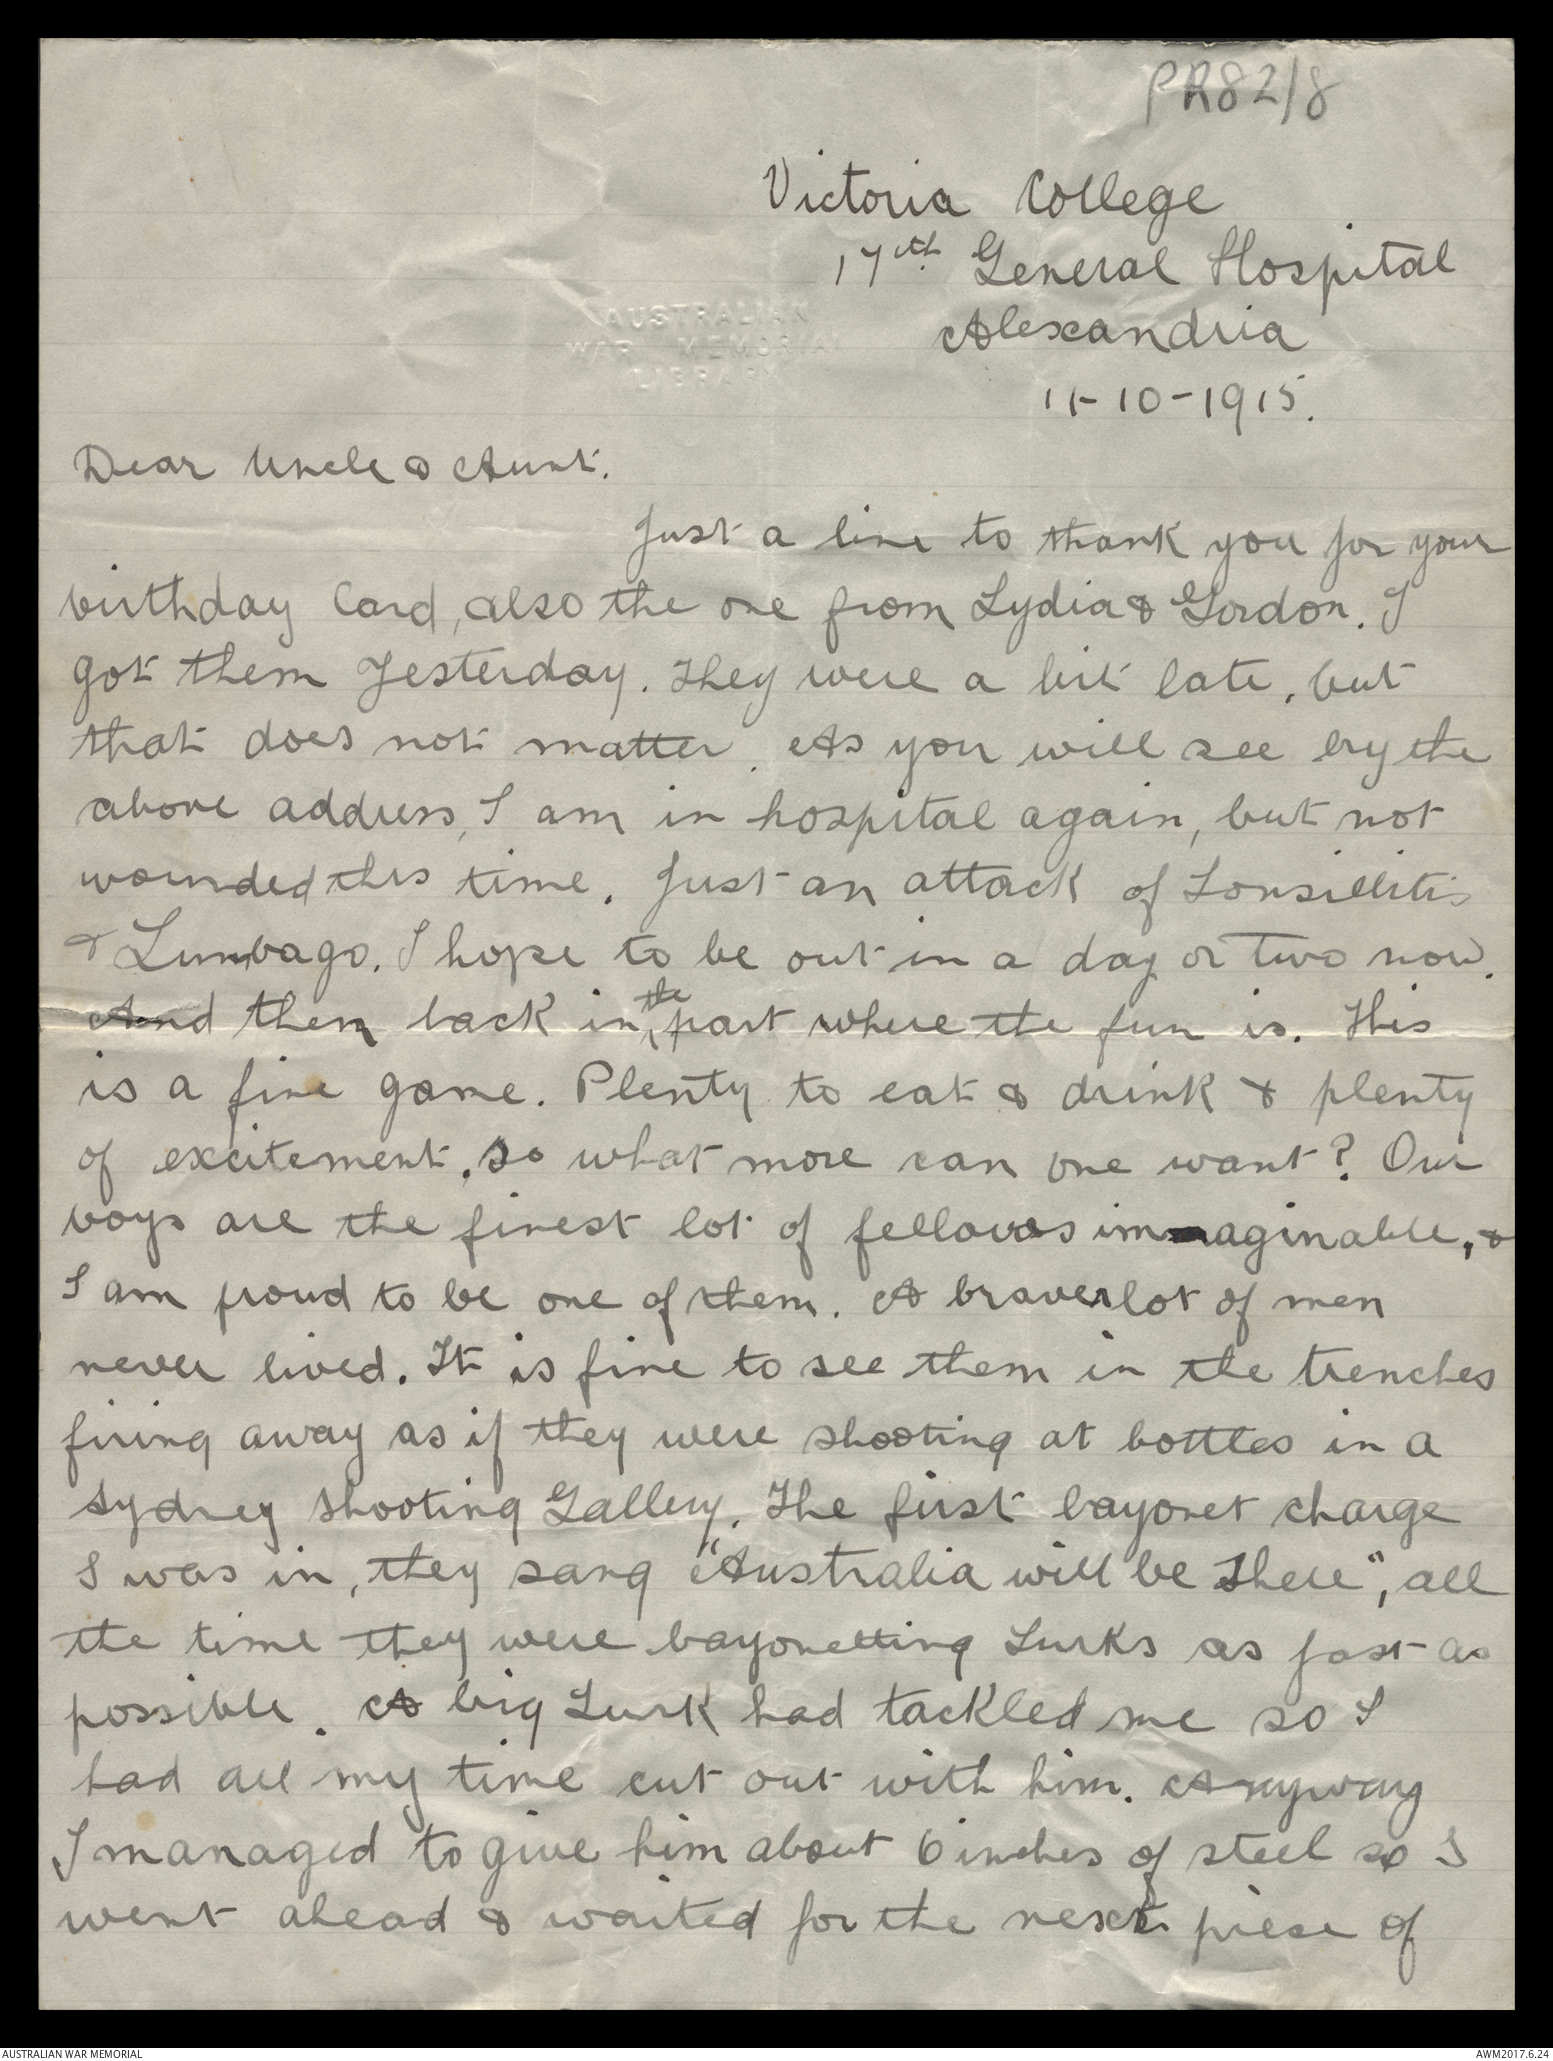 PR82/8
Victoria College
17th General Hospital
Alexandria
11-10-1915.
AUSTRALIAN
WAR MEMORIAL
LIBRARY
Dear Uncle & Aunt.
Just a line to thank you for your
birthday Card, also the one from Lydia & Gordon. I
got them Yesterday. They were a bit late, but
that does not matter. As you will see by the
above address, I am in hospital again, but not
wounded this time. Just an attack of Tonsillitis
& Lumbago. I hope to be out in a day or two now.
And then back in the part where the fun is. This
is a fine game. Plenty to eat & drink & plenty
of excitement, so what more can one want? Our
boys are the finest lot of fellows immaginable, &
I am proud to be one of them. A braver lot of men
never lived. It is fine to see them in the trenches
firing away as if they were shooting at bottles in a
Sydney Shooting Gallery. The first bayonet charge
I was in, they sang "Australia will be there", all
the time they were bayonetting Turks as fast as
possible. A big Turk had tackled me so I
had all my time cut out with him. Anyway
I managed to give him about 6 inches of steel so I
went ahead & waited for the next piese of
AUSTRALIAN WAR MEMORIAL
AWM2017.6.24